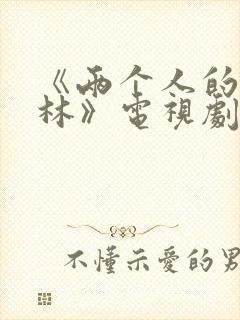 《兩个人的
林》電視劇
不懂示愛的男